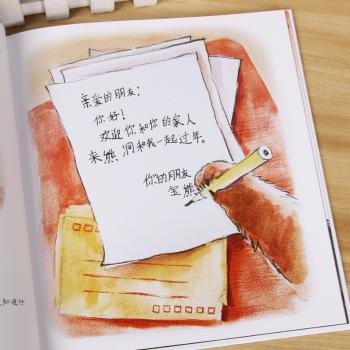 亲爱的朋友:
你好!
欢迎你和你的家人
来熊洞和我一起过年。
你的朋友
宝熊